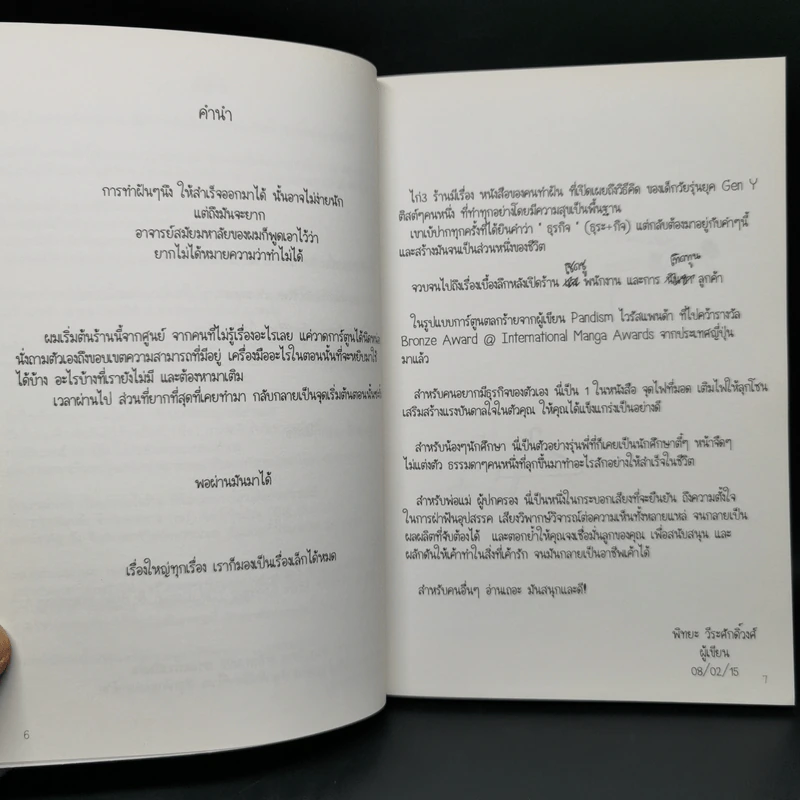 คำนำ
การทำฝันๆนึง ให้สำเร็จออกมาได้ นั้นอาจไม่ง่ายนัก
แต่ถึงมันจะยาก
อาจารย์สมัยมหาลัยของผมก็พูดเอาไว้ว่า
ยากไม่ได้หมายความว่าทำไม่ได้
ผมเริ่มต้นร้านนี้จากศูนย์ จากคนที่ไม่รู้เรื่องอะไรเลย แค่วาดการ์ตูนได้นิดหน่อย
นั่งถามตัวเองถึงขอบเขตความสามารถที่มีอยู่ เครื่องมืออะไรในตอนนั้นที่จะหยิบมาใช้
ได้บ้าง อะไรบ้างที่เรายังไม่มี และต้องหามาเติม
เวลาผ่านไป ส่วนที่ยากที่สุดที่เคยทำมา กลับกลายเป็นจุดเริ่มต้นตอนนั้น
พอผ่านมันมาได้
เรื่องใหญ่ทุกเรื่อง เราก็มองเป็นเรื่องเล็กได้หมด
6
ไก่3 ร้านมีเรื่อง หนังสือของคนทำฝัน ที่เปิดเผยถึงวิธีคิด ของเด็กวัยรุ่นยุค Gen Y
ติสต์ๆคนหนึ่ง ที่ทำทุกอย่างโดยมีความสุขเป็นพื้นฐาน
เขาเบ้ปากทุกครั้งที่ได้ยินคำว่า " ธุรกิจ " (ธุระ+กิจ) แต่กลับต้องมาอยู่กับคำๆนี้
และสร้างมันจนเป็นส่วนหนึ่งของชีวิต
จวบจนไปถึงเรื่องเบื้องลึกหลังเปิดร้าน พนักงาน และการ ลูกค้า
ในรูปแบบการ์ตูนตลกร้ายจากผู้เขียน Pandism ไวรัสแพนด้า ที่ไปคว้ารางวัล
Bronze Award @ International Manga Awards จากประเทศญี่ปุ่น
มาแล้ว
สำหรับคนอยากมีธุรกิจของตัวเอง นี่เป็น 1 ในหนังสือ จุดไฟที่มอด เติมไฟให้ลุกโชน
เสริมสร้างแรงบันดาลใจในตัวคุณ ให้คุณได้แข็งแกร่งเป็นอย่างดี
สำหรับน้องๆนักศึกษา นี่เป็นตัวอย่างรุ่นพี่ที่ก็เคยเป็นนักศึกษาตี๋ๆ หน้าจืดๆ
ไม่แต่งตัว ธรรมดาๆคนหนึ่งที่ลุกขึ้นมาทำอะไรสักอย่างให้สำเร็จในชีวิต
สำหรับพ่อแม่ ผู้ปกครอง นี่เป็นหนึ่งในกระบอกเสียงที่จะยืนยัน ถึงความตั้งใจ
ในการฝ่าฟันอุปสรรค เสียงวิพากษ์วิจารณ์ต่อความเห็นทั้งหลายแหล่ จนกลายเป็น
ผลผลิตที่จับต้องได้ และตอกย้ำให้คุณจงเชื่อมั่นลูกของคุณ เพื่อสนับสนุน และ
ผลักดันให้เค้าทำในสิ่งที่เค้ารัก จนมันกลายเป็นอาชีพเค้าได้
สำหรับคนอื่นๆ อ่านเถอะ มันสนุกและดี!
พิทยะ วีระศักดิ์วงศ์
ผู้เขียน
08/02/15
7